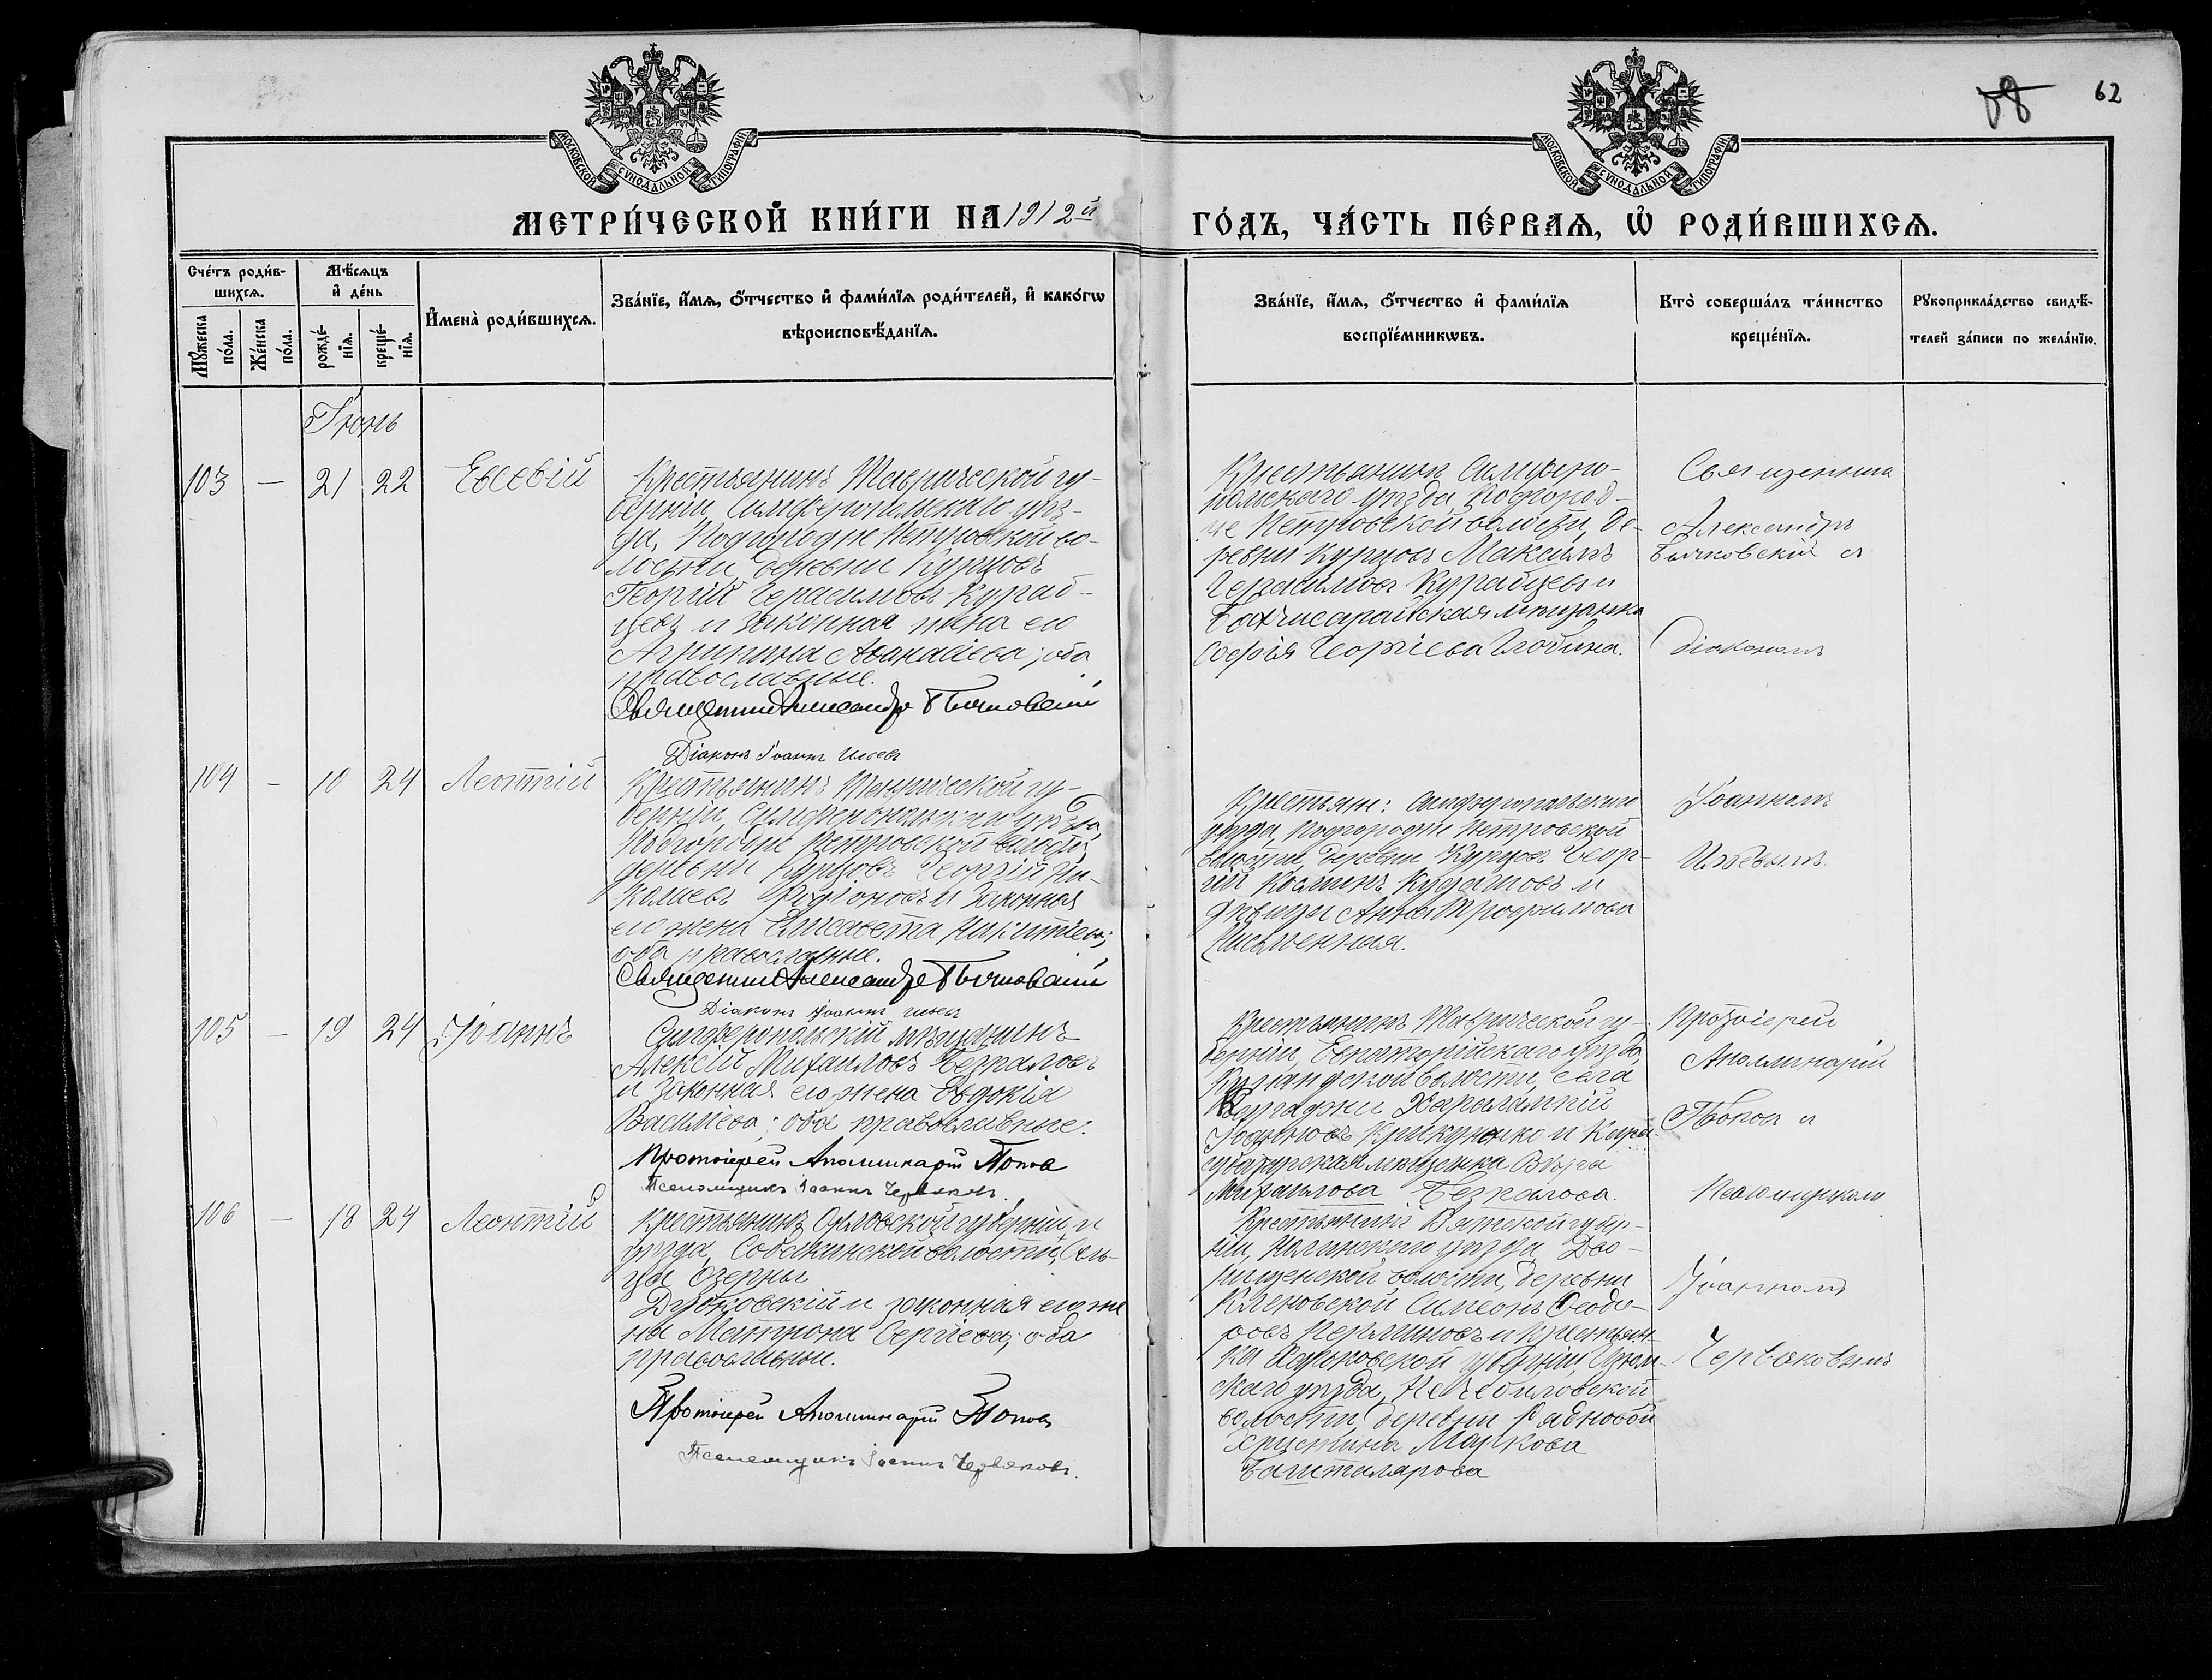 68 62
МОСКОВСКОЙ СѴНОДАЛЬНОЙ ТИПОГРАФІИ
МОСКОВСКОЙ СѴНОДАЛЬНОЙ ТИПОГРАФІИ
МЕТРИ́ЧЕСКОЙ КНИ́ГИ НА 1912й ГО́ДЪ, ЧА́СТЬ ПЕ́РВАѦ, Ѡ҆ РОДИ́ВШИХСѦ.
Сче́тъ роди́в-
шихсѧ.
Мꙋ́жеска
по́ла.
Же́нска
по́ла.
Мѣ́сѧцъ
и҆ де́нь
рожде́-
нїѧ.
креще́-
нїѧ.
И҆мена̀ роди́вшихсѧ.
Зва́нїе, и҆́мѧ, ѻ҆́тчество и҆ фами́лїѧ роди́телей, и҆ како́гѡ
вѣроисповѣ́данїѧ.
Зва́нїе, и҆́мѧ, ѻ҆́тчество и҆ фами́лїѧ
воспрїе́мникѡвъ.
Кто̀ соверша́лъ та́инство
креще́нїѧ.
Рꙋкоприкла́дство свидѣ́-
телей за́писи по жела́нїю.
Іюнь
103 — 21 22 Евсевій
Крестьянинъ Таврической гу-
берніи, Симферопольскаго уѣз-
да, Подгородне Петровской во-
лости, деревни Курцовъ
Георгій Герасимовъ Курас-
цевъ и законная жена его
Агрипина Аванасіева; оба
православные.
Священникъ Александръ Бычковскій
Діаконъ Іоаннъ Ильевъ
Крестьянинъ Симферо-
польскаго уѣзда, Подгород-
не Петровской волости, де-
ревни Курцовъ Максимъ
Герасимовъ и
Бахчисарайская мѣщанка
Софія Георгіева
Священник
Александръ
Бычковскій съ
діакономъ
104 — 10 24 Леонтій
Крестьянинъ Таврической гу-
берніи, Симферопольскаго уѣзда,
Подгородне Петровской волости,
деревни Курцовъ Георгій Ни-
колаевъ Родіоновъ и законная
его жена Елисавета Никитіева;
оба православные.
Священникъ Александръ Бычковскій
Діаконъ Іоаннъ Ильевъ
Крестьян: Симферопольскаго
уѣзда Подгородне Петровской
волости, деревни Курцовъ Геор-
гій Косминъ и
дѣвица Анна Трофимова
Письменная.
Іоанномъ
Ильевымъ
105 — 19 24 Іоаннъ
Симферопольскій мѣщанинъ
Алексій Михаиловъ Безпаловъ
и законная его жена Евдокія
Василіева; оба православные.
Протоіерей Аполлинарій Поповъ
Псаломщикъ Іоаннъ Червяковъ.
Крестьянинъ Таврической гу-
берніи, Евпаторійскаго уѣзда,
волости, села
Харалампій
и
мѣщанка Вѣра
Михаилова Безпалова.
Протоіерей
Аполлинарій
Поповъ съ
Псаломщикомъ
106 — 18 24 Леонтій
Крестьянинъ Орловской губерніи и
уѣзда, Собакинской волости, Сель-
ца Озерны
Дубовскій и законная его же
на Матрона Сергіева; оба
православные.
Протоіерей Аполлинарій Поповъ
Псаломщикъ Іоаннъ Червяковъ.
Крестьянинъ Вятской губер-
ніи, Нолинскаго уѣзда,
волости, деревни
Кленовской Симеонъ Ѳеодо-
ровъ и крестьян-
ка Харьковской губерніи, Изюм-
скаго уѣзда,
волости, деревни
Христина Маркова
Іоанномъ
Червяковымъ